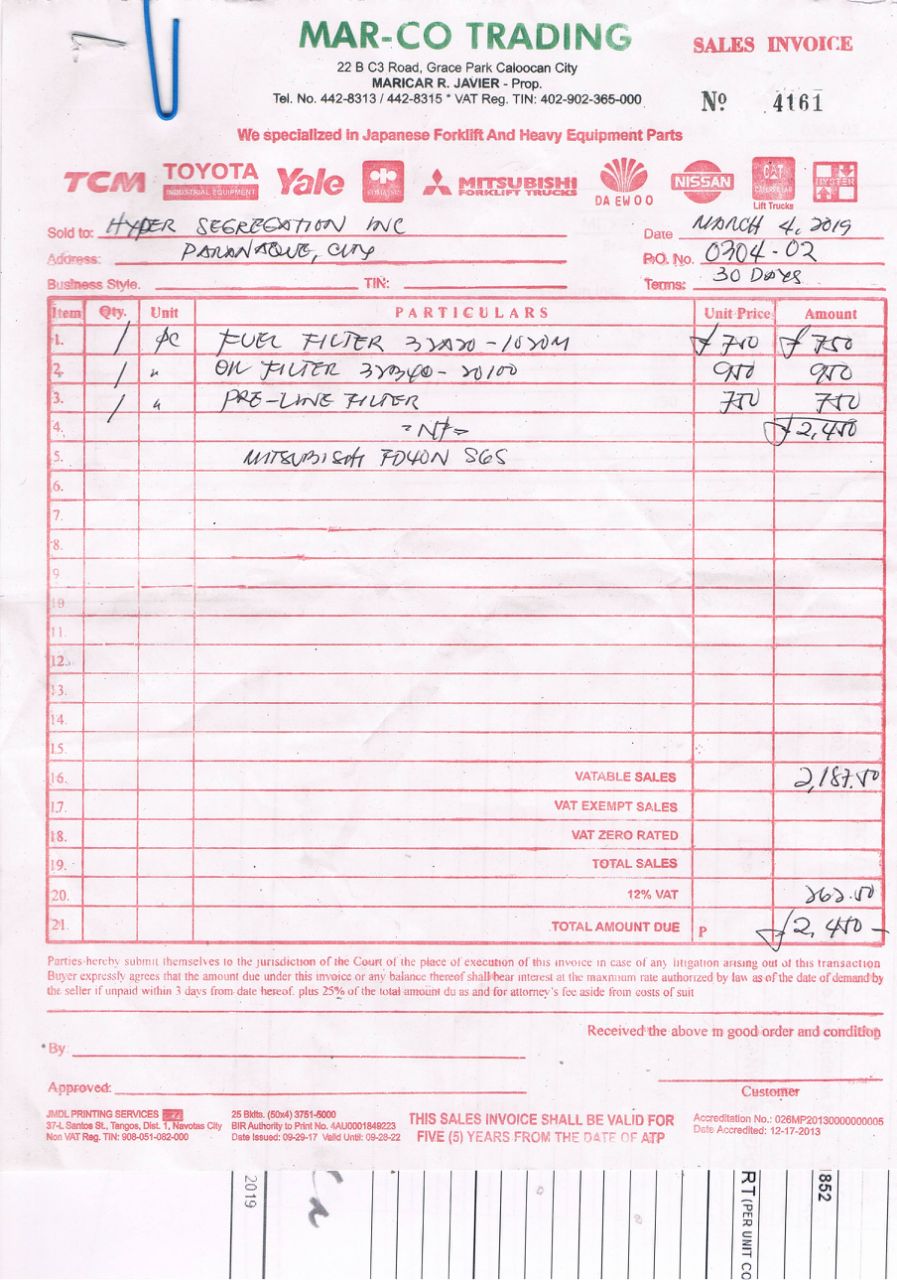 MAR-CO TRADING
SALES INVOICE
22 B C3 Road, Grace Park Caloocan City
MARICAR R. JAVIER - Prop.
Tel. No. 442-8313 / 442-8315 * VAT Reg. TIN: 402-902-365-000
Nº 4161
We specialized in Japanese Forklift And Heavy Equipment Parts
TCM TOYOTA INDUSTRIAL EQUIPMENT Yale KOMATSU MITSUBISHI FORKLIFT TRUCKS DAEWOO NISSAN CAT CATERPILLAR Lift Trucks HYSTER
Sold to: HYPER SEGREGATION INC Date MARCH 4, 2019
Address: PARANAQUE, CITY P.O. No. 0304-02
Business Style. TIN: Terms: 30 DAYS
Item Qty. Unit PARTICULARS Unit Price Amount
1. 1 PC FUEL FILTER 750
2. 1 " OIL FILTER 950 950
3. 1 " PRE-LINE FILTER 750 750
4. 2,450
5. MITSUBISHI FD40N S6S
6.
7.
8.
9
10
11.
12.
13.
14.
15.
16. VATABLE SALES 2,187.50
17. VAT EXEMPT SALES
18. VAT ZERO RATED
19. TOTAL SALES
20. 12% VAT 262.50
21. TOTAL AMOUNT DUE P 2,450
Parties hereby submit themselves to the jurisdiction of the Court of the place of execution of this invoice in case of any litigation arising out of this transaction
Buyer expressly agrees that the amount due under this invoice or any balance thereof shall bear interest at the maximum rate authorized by law as of the date of demand by
the seller if unpaid within 3 days from date hereof. plus 25% of the total amount du as and for attorney's fee aside from costs of suit
Received the above in good order and condition
By
Approved:
Customer
JMDL PRINTING SERVICES
37-L Santos St., Tangos, Dist. 1, Navotas City
Non VAT Reg. TIN: 908-051-082-000
25 Bklts. (50x4) 3751-5000
BIR Authority to Print No. 4AU0001849223
Date Issued: 09-29-17 Valid Until: 09-28-22
THIS SALES INVOICE SHALL BE VALID FOR
FIVE (5) YEARS FROM THE DATE OF ATP
Accreditation No.: 026MP20130000000005
Date Accredited: 12-17-2013
2019
RT (PER UNIT CO
1852